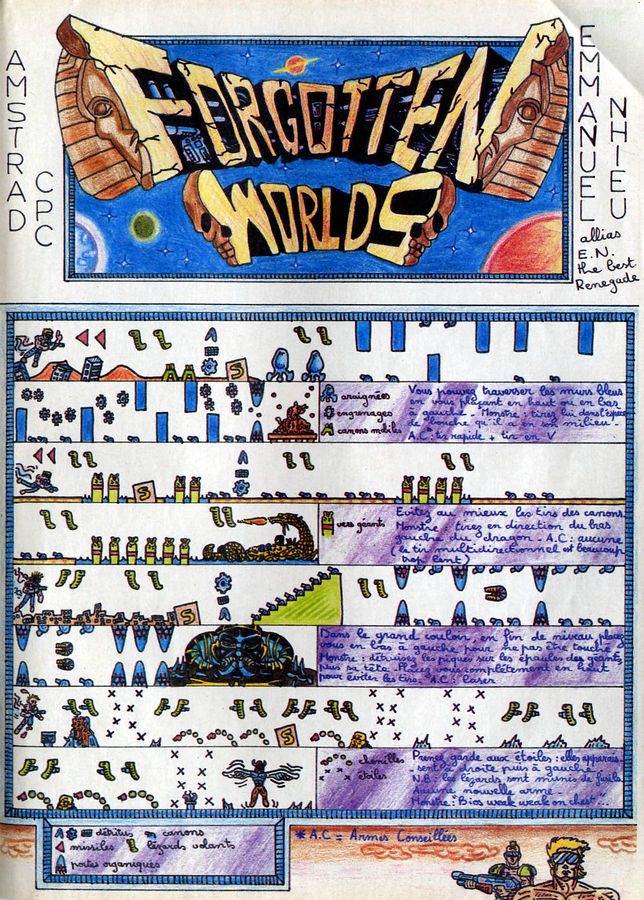 AMSTRAD
CPC
FORGOTTEN
WORLDS
EMMANUEL
NHIEU
allias
E.N.
the best
Renegade
S
araignées
engrenages
canons mobiles
Vous pouvez traverser les murs bleus
en vous plaçant en haut ou en bas
à gauche. Monstre: tirez lui dans l'espèce
de bouche qu'il a en son milieu.
A.C: tir rapide + tir en V
S
vers géants
Evitez au mieux les tirs des canons.
Monstre: tirez en direction du bras
gauche du dragon. A.C: aucune
(le tir multidirectionnel est beaucoup
trop lent)
S
Dans le grand couloir, en fin de niveau placez
vous en bas à gauche pour ne pas être touché
Monstre: détruisez les piques sur les épaules des géants
puis sa tête. Placez vous complètement en haut
pour éviter les tirs. A.C: laser
S
chenilles
étoiles
Prenez garde aux étoiles: elles apparais-
sent à droite puis à gauche.
N.B: les lézards sont munis de fusils
Aucune nouvelle arme
Monstre: Bios weak weak on chest...
détritus canons
missiles lézards volants
portes organiques
* A.C = Armes Conseillées